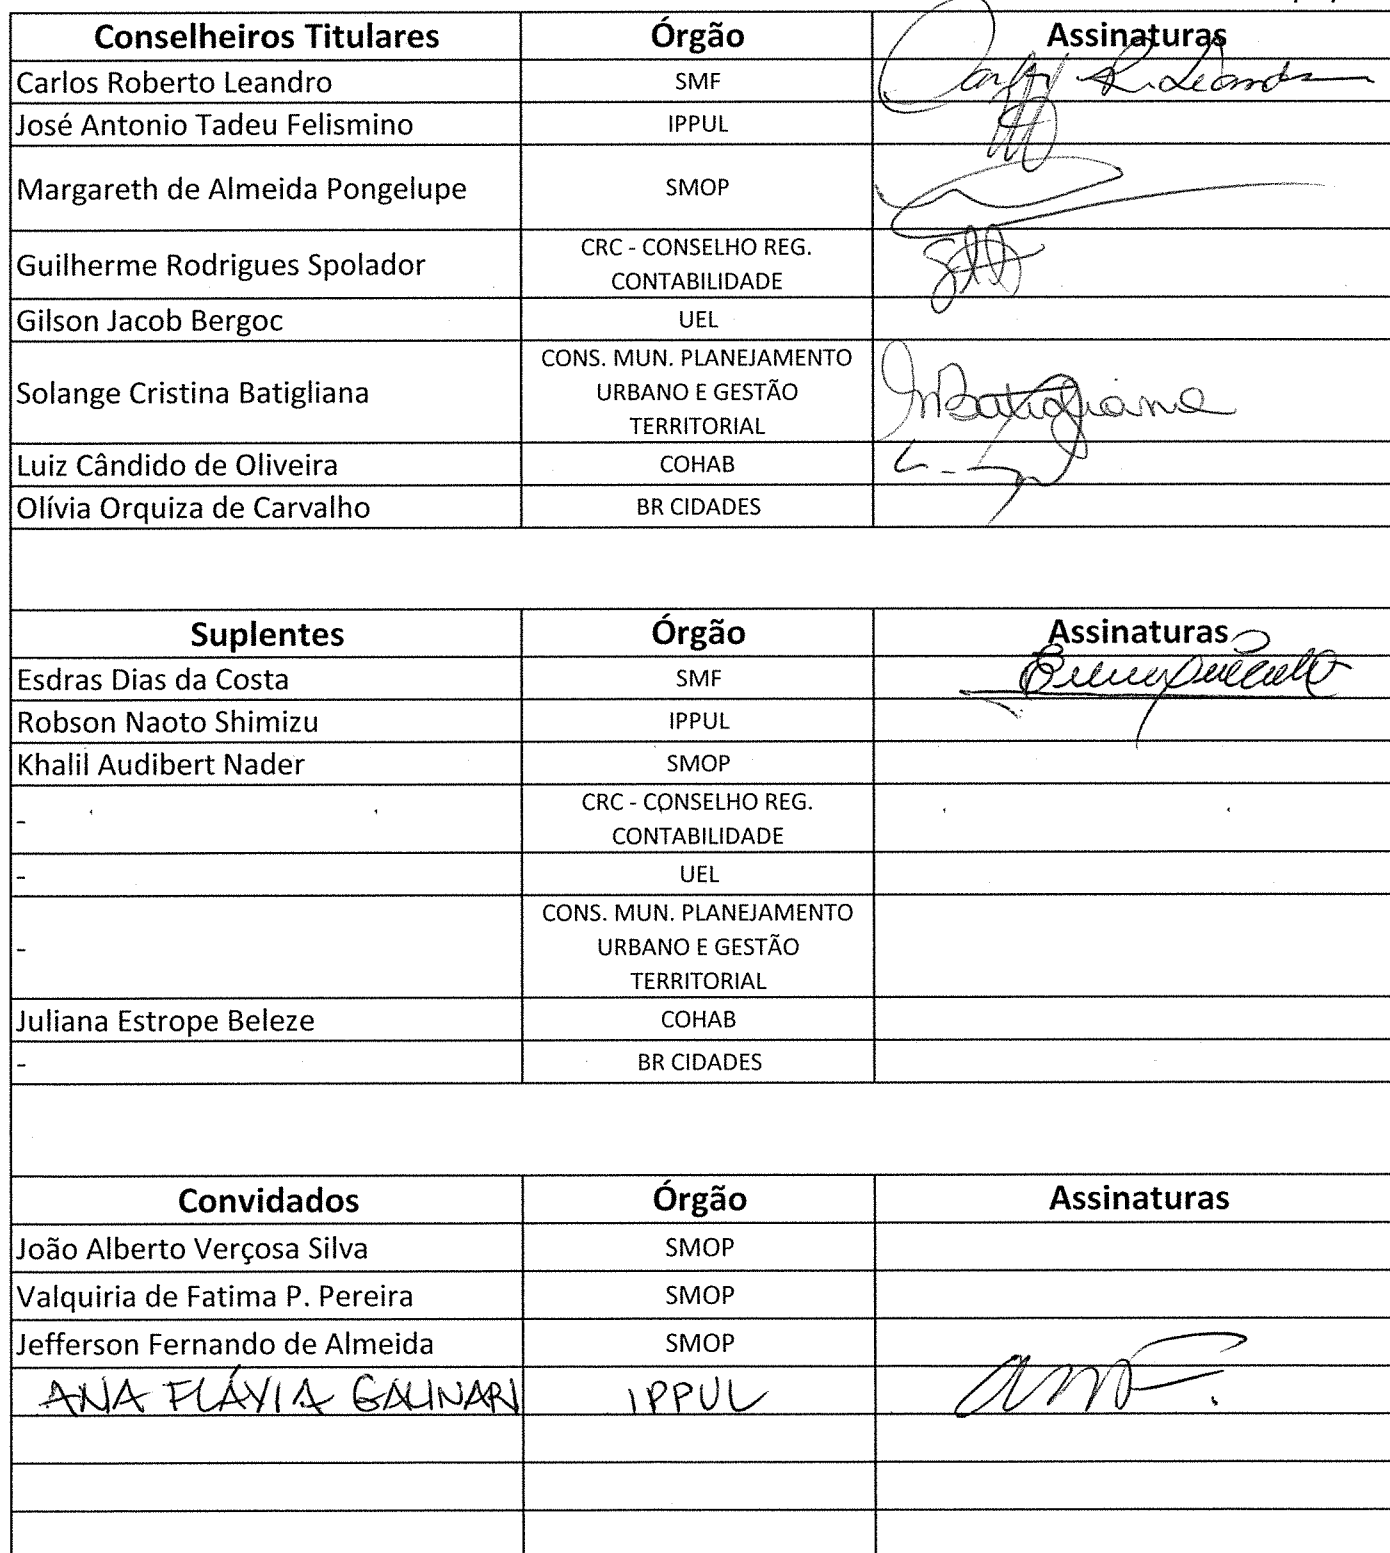 Conselheiros Titulares Órgão Assinaturas
Carlos Roberto Leandro SMF
José Antonio Tadeu Felismino IPPUL
Margareth de Almeida Pongelupe SMOP
Guilherme Rodrigues Spolador CRC - CONSELHO REG.
CONTABILIDADE
Gilson Jacob Bergoc UEL
CONS. MUN. PLANEJAMENTO
Solange Cristina Batigliana URBANO E GESTÃO Batigliana
TERRITORIAL
Luiz Cândido de Oliveira COHAB
Olívia Orquiza de Carvalho BR CIDADES
Suplentes Órgão Assinaturas
Esdras Dias da Costa SMF
Robson Naoto Shimizu IPPUL
Khalil Audibert Nader SMOP
- CRC - CONSELHO REG.
CONTABILIDADE
- UEL
CONS. MUN. PLANEJAMENTO
- URBANO E GESTÃO
TERRITORIAL
Juliana Estrope Beleze COHAB
- BR CIDADES
Convidados Órgão Assinaturas
João Alberto Verçosa Silva SMOP
Valquiria de Fatima P. Pereira SMOP
Jefferson Fernando de Almeida SMOP
ANA FLÁVIA GALINARI IPPUL